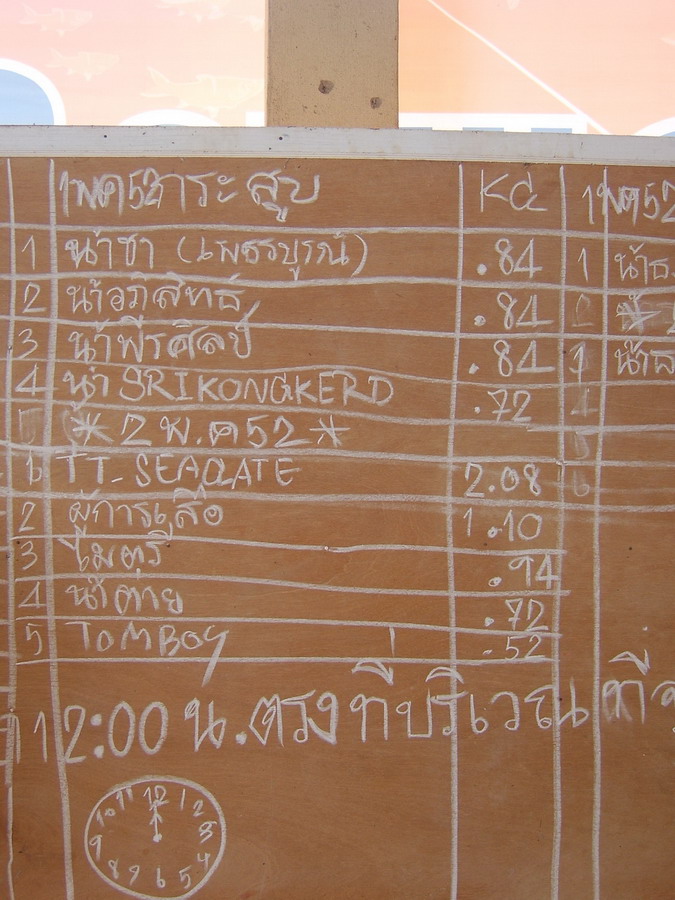 1พค52 กระสูบ KG 1พค52
1 น้าชา (เพชรบูรณ์) .84 1
2 น้าอภิสิทธิ์ .84 2
3 น้าพีรศิลป์ .84 1
4 น้า SRIKONGKERD .72
* 2 พ.ค 52 *
1 TT. SEAGATE 2.08
2 ผู้การเสือ 1.10
3 ไมตรี .94
4 น้าต่าย .72
5 TOMBOY .52
12:00 น. ตรง ที่บริเวณ
11 12 1
10 2
9 3
8 4
7 6 5